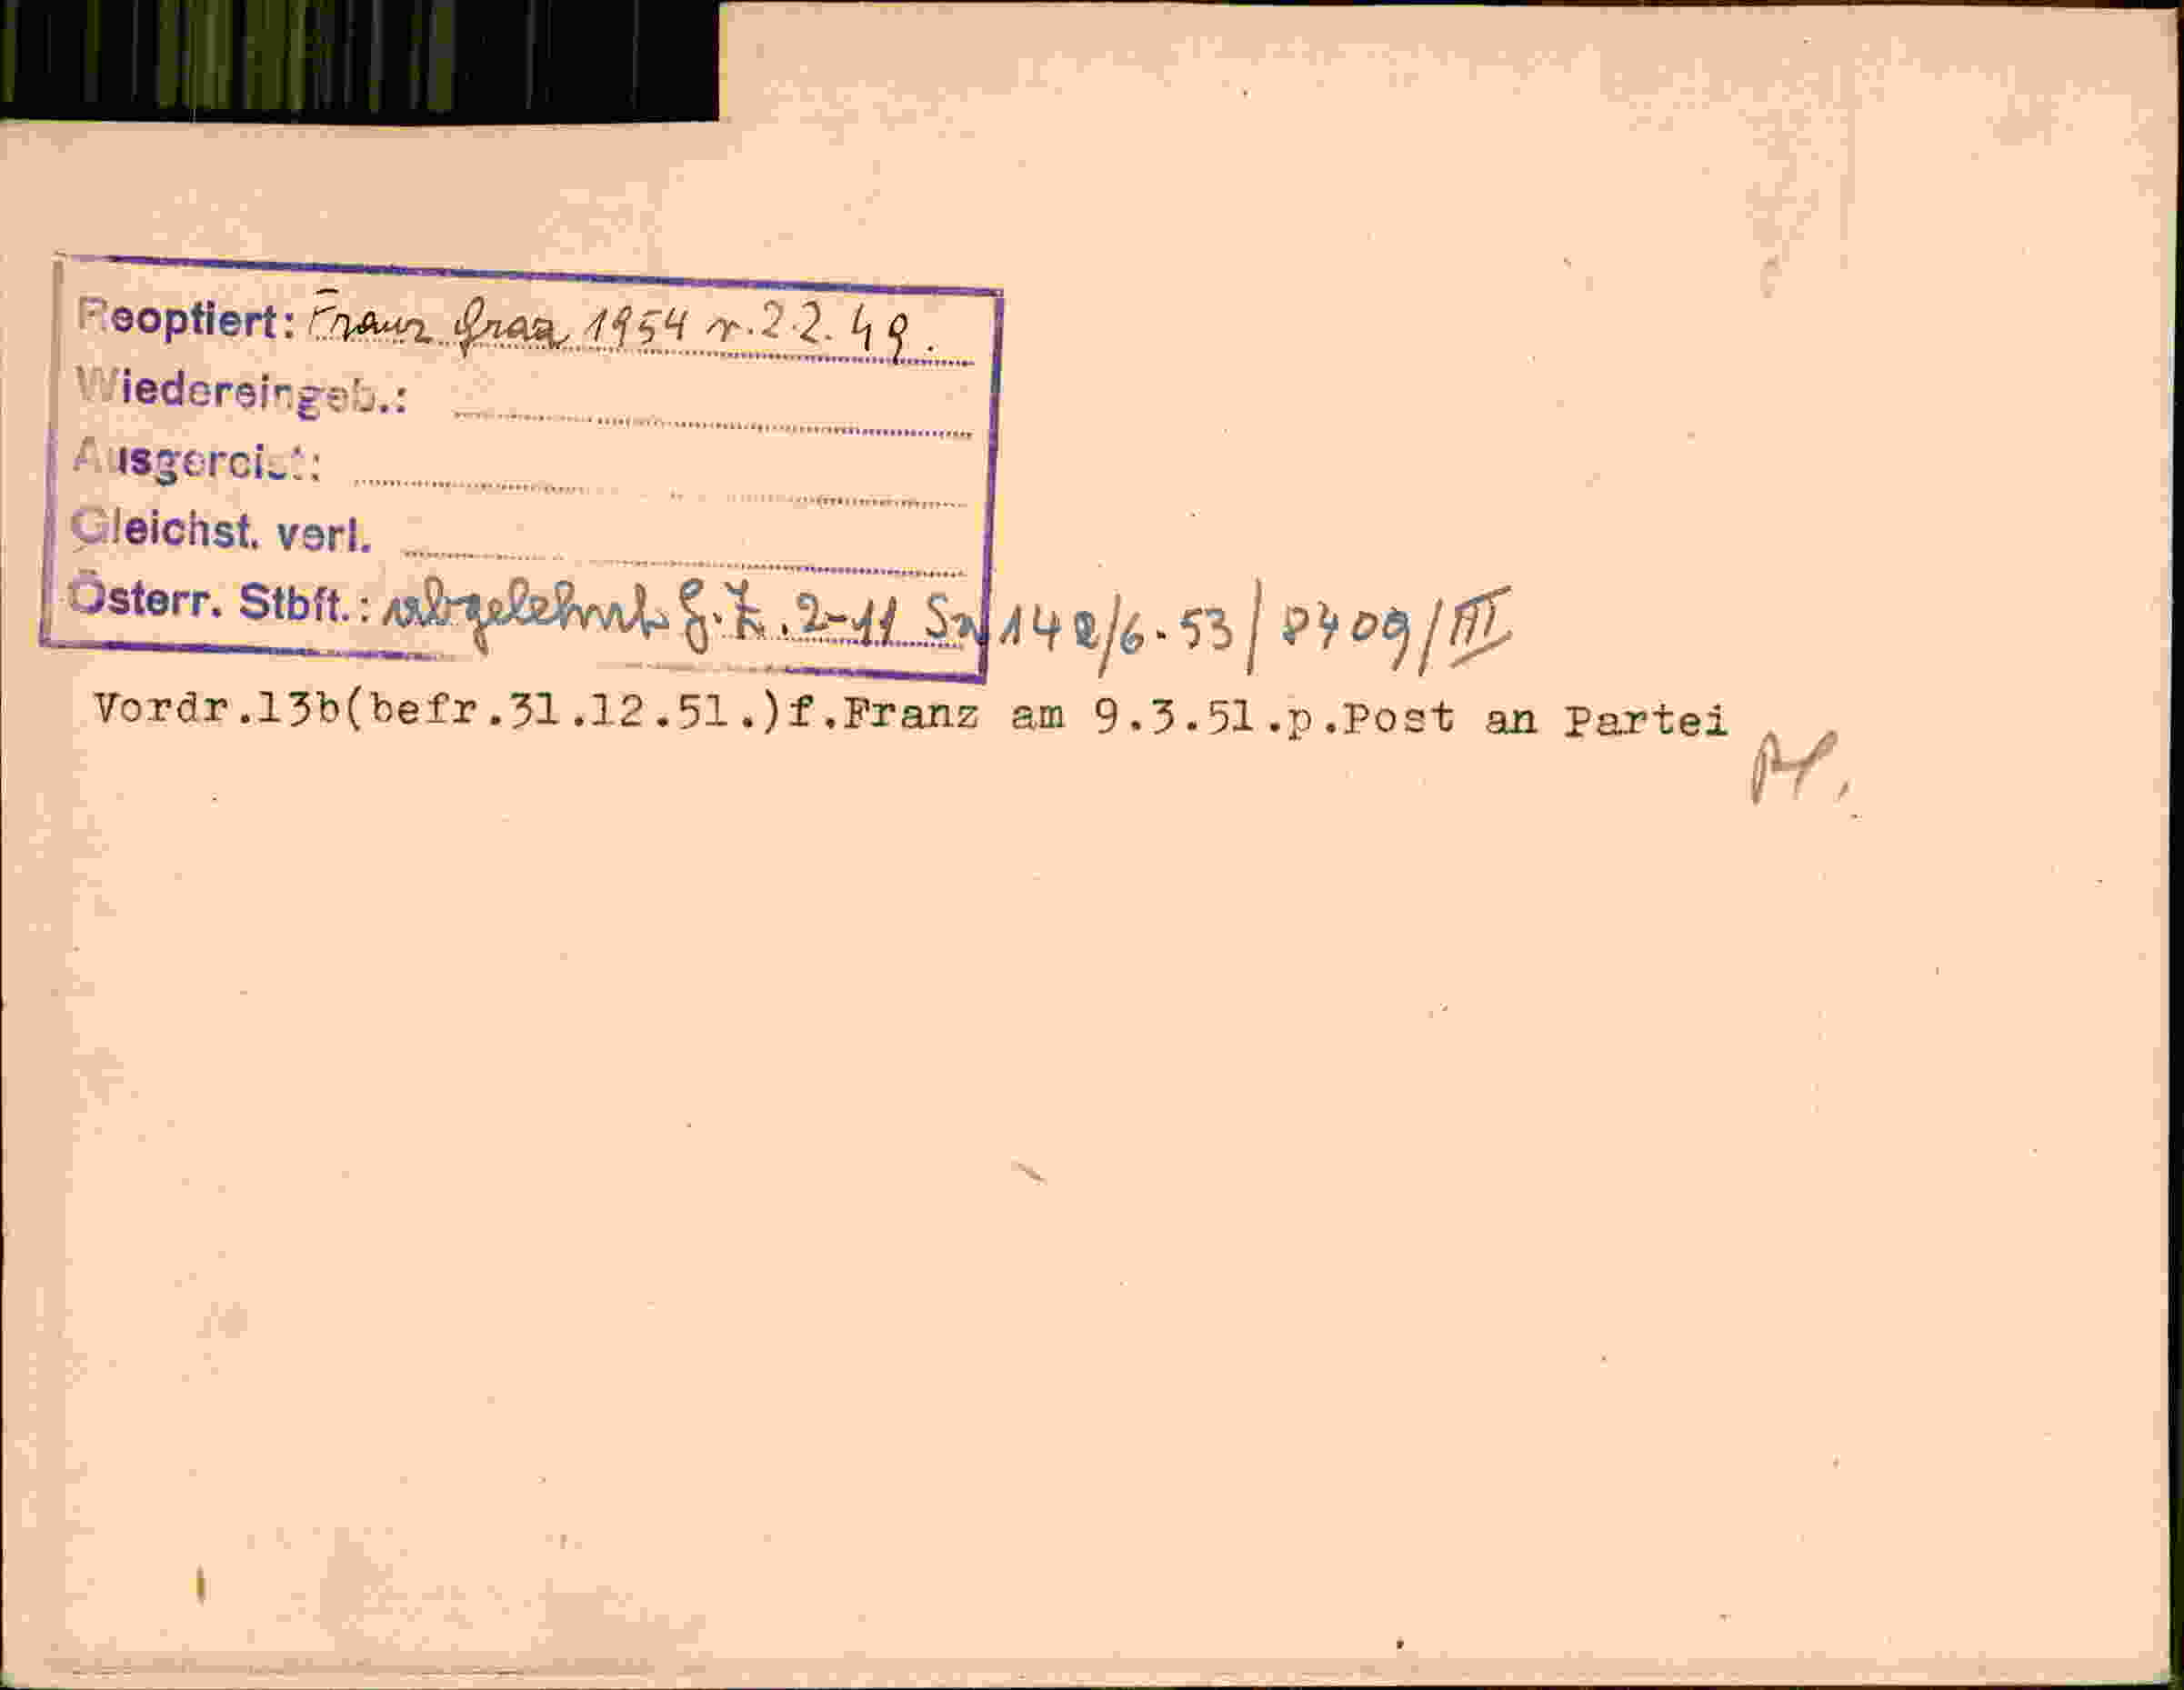 Reoptiert: Franz Graz 1954 v. 2.2.49.
Wiedereingeb.:
Ausgereist:
Gleichst. verl.
Österr. Stbft.: abgelehnt G.Z. 2-11 142/6-53/ 09/III
Vordr.13b(befr.31.12.51.)f.Franz am 9.3.51.p.Post an Partei